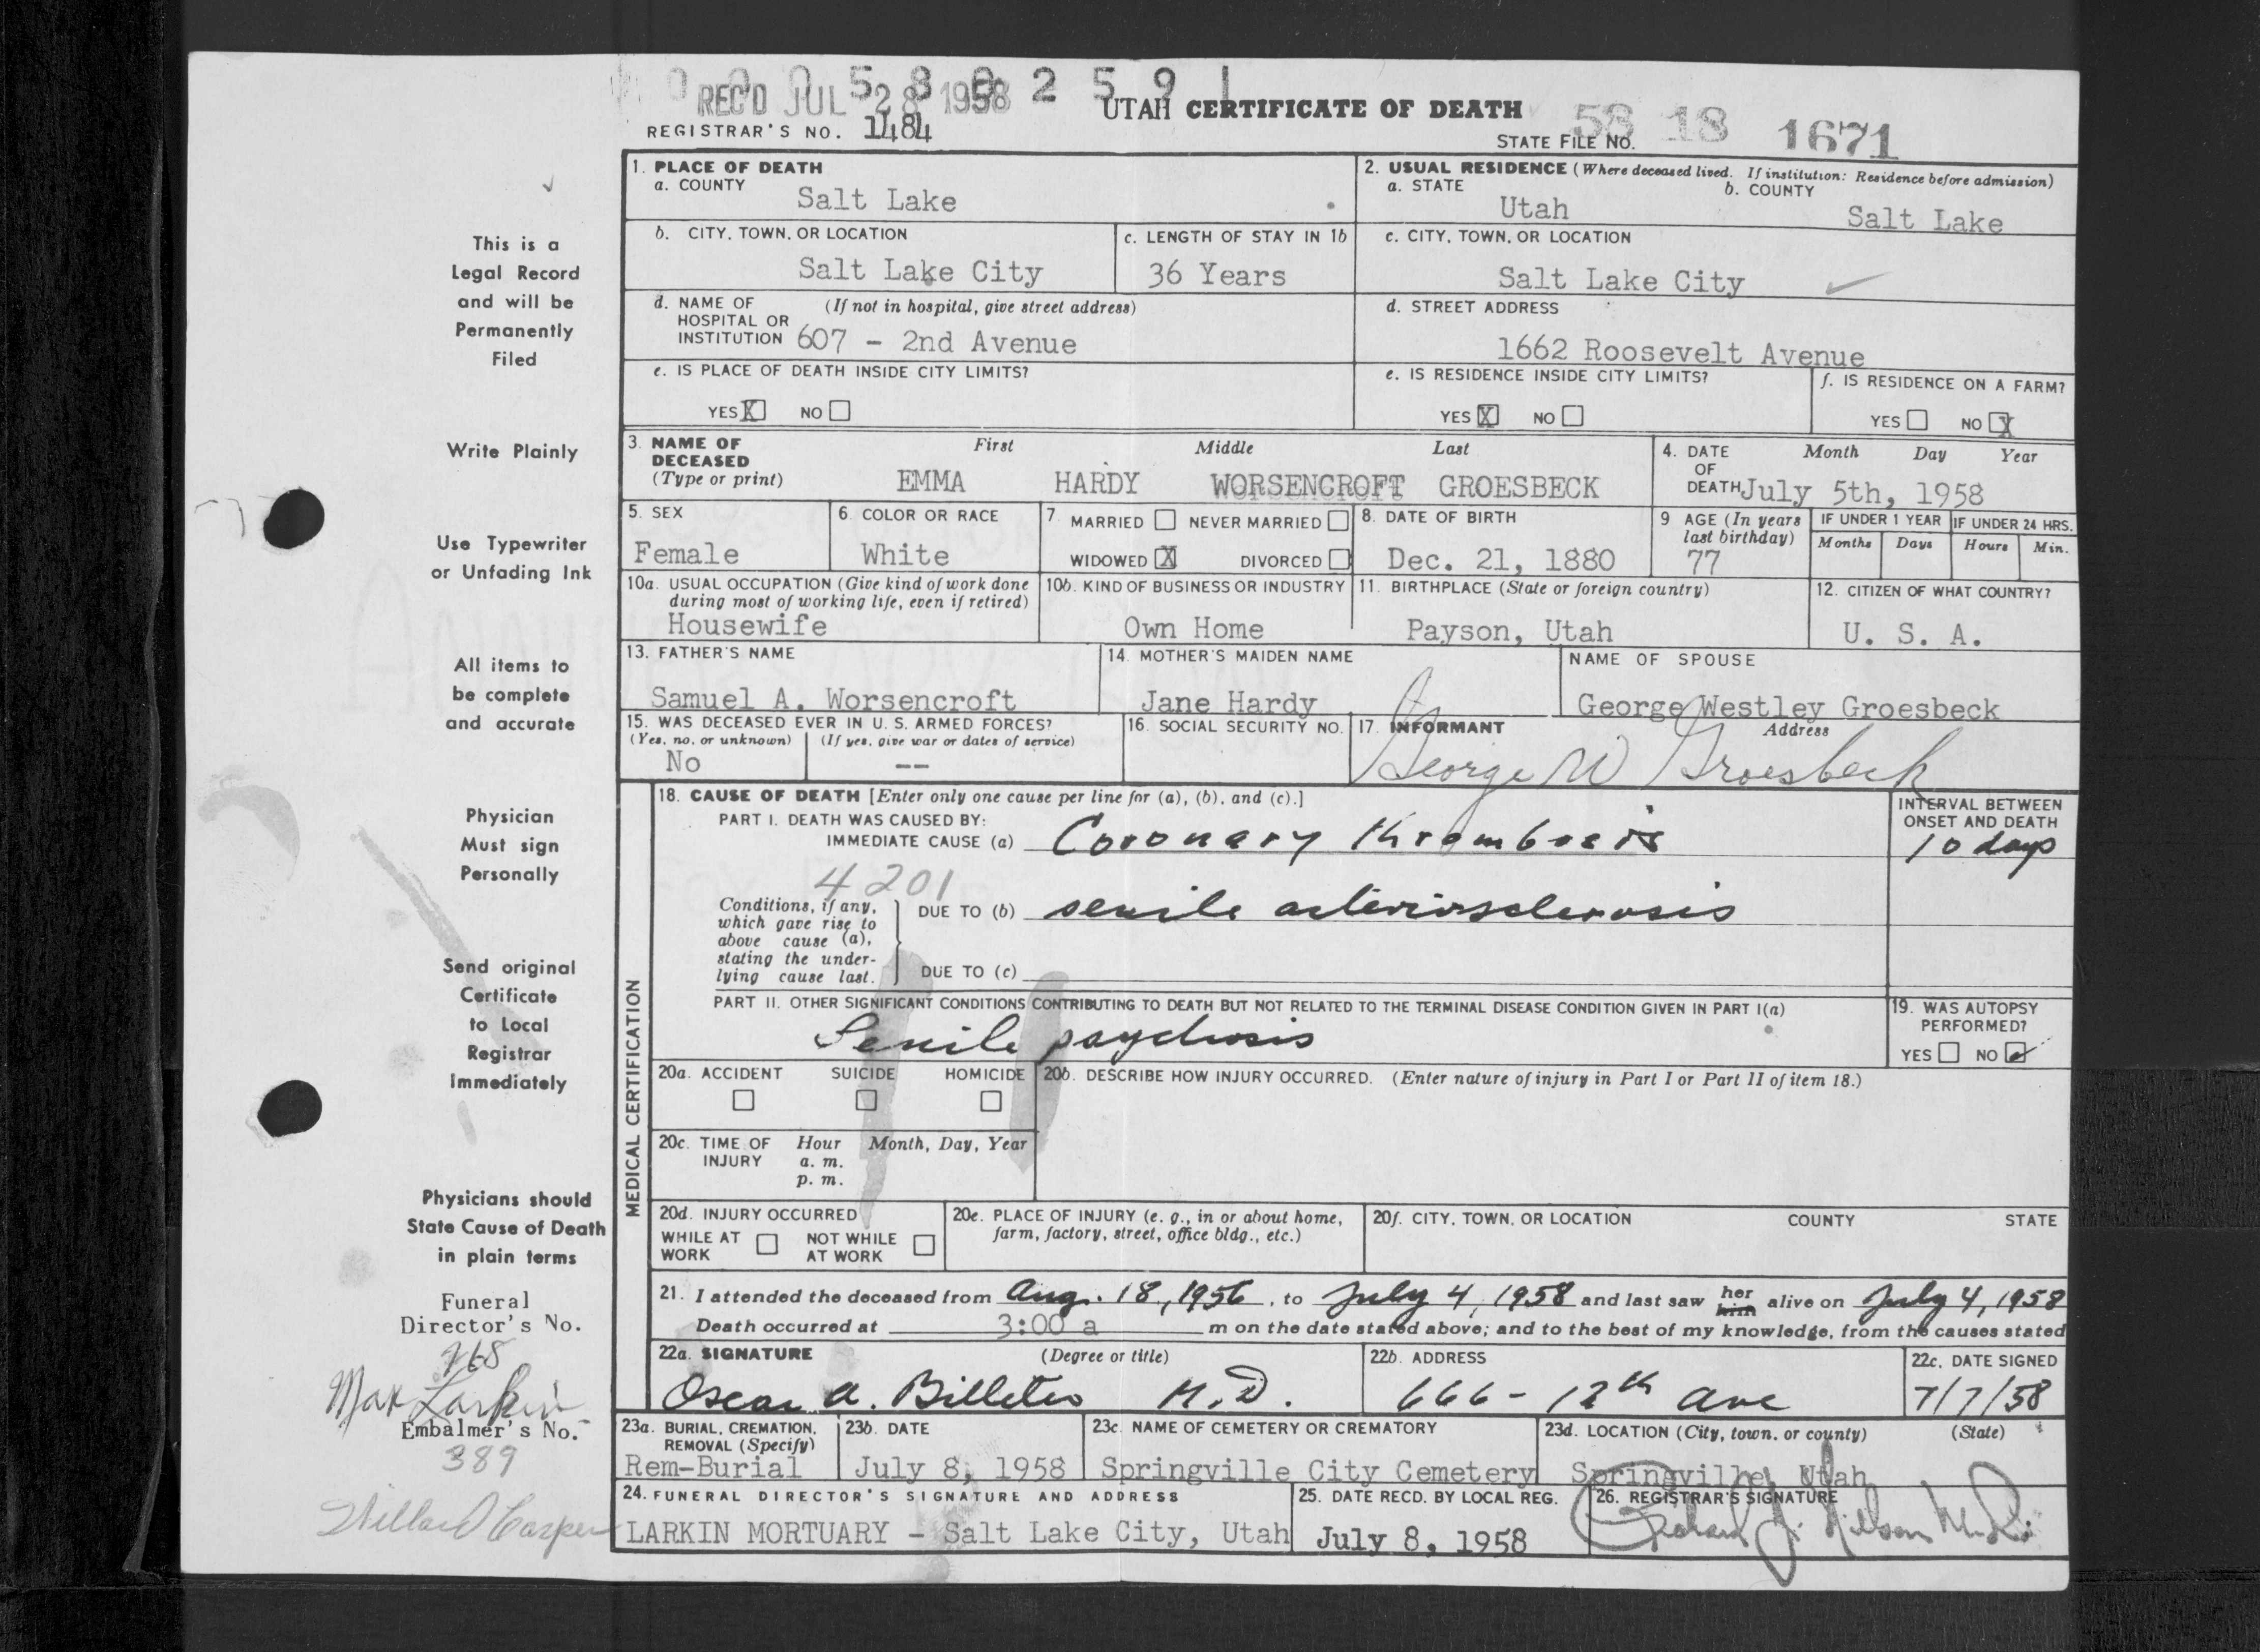 0 0 0 5 8 0 2 5 9 1
REC'D JUL 28 1958 UTAH CERTIFICATE OF DEATH
REGISTRAR'S NO. 1484 STATE FILE NO. 58 18 1671
1. PLACE OF DEATH
a. COUNTY Salt Lake
2. USUAL RESIDENCE (Where deceased lived. If institution: Residence before admission)
a. STATE Utah b. COUNTY Salt Lake
b. CITY, TOWN, OR LOCATION Salt Lake City
c. LENGTH OF STAY IN 1b 36 Years
c. CITY, TOWN, OR LOCATION Salt Lake City
d. NAME OF HOSPITAL OR INSTITUTION (If not in hospital, give street address) 607 - 2nd Avenue
d. STREET ADDRESS 1662 Roosevelt Avenue
e. IS PLACE OF DEATH INSIDE CITY LIMITS?
YES X NO
e. IS RESIDENCE INSIDE CITY LIMITS?
YES X NO
f. IS RESIDENCE ON A FARM?
YES NO X
3. NAME OF DECEASED (Type or print) First Middle Last
EMMA HARDY WORSENCROFT GROESBECK
4. DATE OF DEATH Month Day Year
July 5th, 1958
5. SEX Female
6. COLOR OR RACE White
7. MARRIED NEVER MARRIED
WIDOWED X DIVORCED
8. DATE OF BIRTH Dec. 21, 1880
9 AGE (In years last birthday) 77
IF UNDER 1 YEAR Months Days
IF UNDER 24 HRS. Hours Min.
10a. USUAL OCCUPATION (Give kind of work done during most of working life, even if retired)
Housewife
10b. KIND OF BUSINESS OR INDUSTRY
Own Home
11. BIRTHPLACE (State or foreign country)
Payson, Utah
12. CITIZEN OF WHAT COUNTRY?
U. S. A.
13. FATHER'S NAME
Samuel A. Worsencroft
14. MOTHER'S MAIDEN NAME
Jane Hardy
NAME OF SPOUSE
George Westley Groesbeck
15. WAS DECEASED EVER IN U. S. ARMED FORCES?
(Yes, no, or unknown) (If yes, give war or dates of service)
No --
16. SOCIAL SECURITY NO.
17. INFORMANT Address
George W Groesbeck
MEDICAL CERTIFICATION
18. CAUSE OF DEATH [Enter only one cause per line for (a), (b), and (c).]
PART I. DEATH WAS CAUSED BY:
IMMEDIATE CAUSE (a) Coronary thrombosis
INTERVAL BETWEEN ONSET AND DEATH
10 days
4201
Conditions, if any, which gave rise to above cause (a), stating the underlying cause last.
DUE TO (b) senile arteriosclerosis
DUE TO (c)
PART II. OTHER SIGNIFICANT CONDITIONS CONTRIBUTING TO DEATH BUT NOT RELATED TO THE TERMINAL DISEASE CONDITION GIVEN IN PART I(a)
Senile psychosis
19. WAS AUTOPSY PERFORMED?
YES NO ✓
20a. ACCIDENT SUICIDE HOMICIDE
20b. DESCRIBE HOW INJURY OCCURRED. (Enter nature of injury in Part I or Part II of item 18.)
20c. TIME OF INJURY Hour Month, Day, Year
a. m.
p. m.
20d. INJURY OCCURRED
WHILE AT WORK NOT WHILE AT WORK
20e. PLACE OF INJURY (e. g., in or about home, farm, factory, street, office bldg., etc.)
20f. CITY, TOWN, OR LOCATION COUNTY STATE
21. I attended the deceased from Aug. 18, 1956, to July 4, 1958 and last saw her him alive on July 4, 1958
Death occurred at 3:00 a m on the date stated above; and to the best of my knowledge, from the causes stated
22a. SIGNATURE (Degree or title)
Oscar A. Billeter M.D.
22b. ADDRESS
666 - 12th Ave
22c. DATE SIGNED
7/7/58
23a. BURIAL, CREMATION, REMOVAL (Specify)
Rem-Burial
23b. DATE
July 8, 1958
23c. NAME OF CEMETERY OR CREMATORY
Springville City Cemetery
23d. LOCATION (City, town, or county) (State)
Springville, Utah
24. FUNERAL DIRECTOR'S SIGNATURE AND ADDRESS
LARKIN MORTUARY - Salt Lake City, Utah
25. DATE RECD. BY LOCAL REG.
July 8, 1958
26. REGISTRAR'S SIGNATURE
This is a
Legal Record
and will be
Permanently
Filed
Write Plainly
Use Typewriter
or Unfading Ink
All items to
be complete
and accurate
Physician
Must sign
Personally
Send original
Certificate
to Local
Registrar
Immediately
Physicians should
State Cause of Death
in plain terms
Funeral
Director's No.
Max Larkin
Embalmer's No.
389